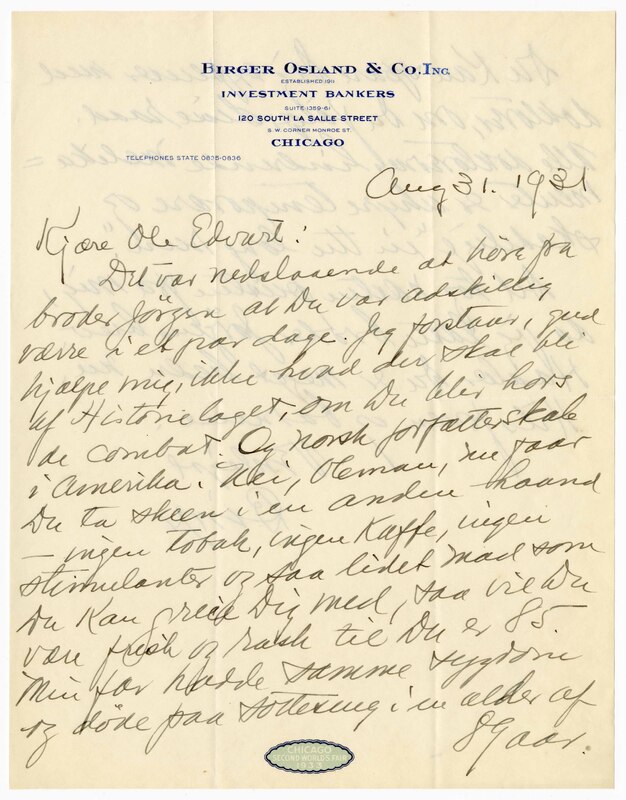 BIRGER OSLAND & CO. INC.
ESTABLISHED 1911
INVESTMENT BANKERS
SUITE 1359-61
120 SOUTH LA SALLE STREET
S. W. CORNER MONROE ST.
CHICAGO
TELEPHONES STATE 0835-0836
Aug 31. 1931
Kjære Ole Edvart!
Det var nedslaaende at höre fra
broder Jörgen at Du var adskillig
værre i et par dage. Jeg forstaar, gud
hjælpe mig, ikke hvad der skal bli
af Historielaget, om Du blir hors
de combat. Og norsk forfatterskab
i Amerika. Nei, Oleman, nu faar
Du ta skeen i en anden haand
— ingen tobak, ingen Kaffe, ingen
stimulanter og saa lidet mad som
Du Kan greie Dig med, saa vil Du
være frisk og rask til Du er 85.
Min far hadde samme sygdom
og döde paa sotteseng i en alder af
89 aar.
CHICAGO
SECOND WORLD'S FAIR
1933